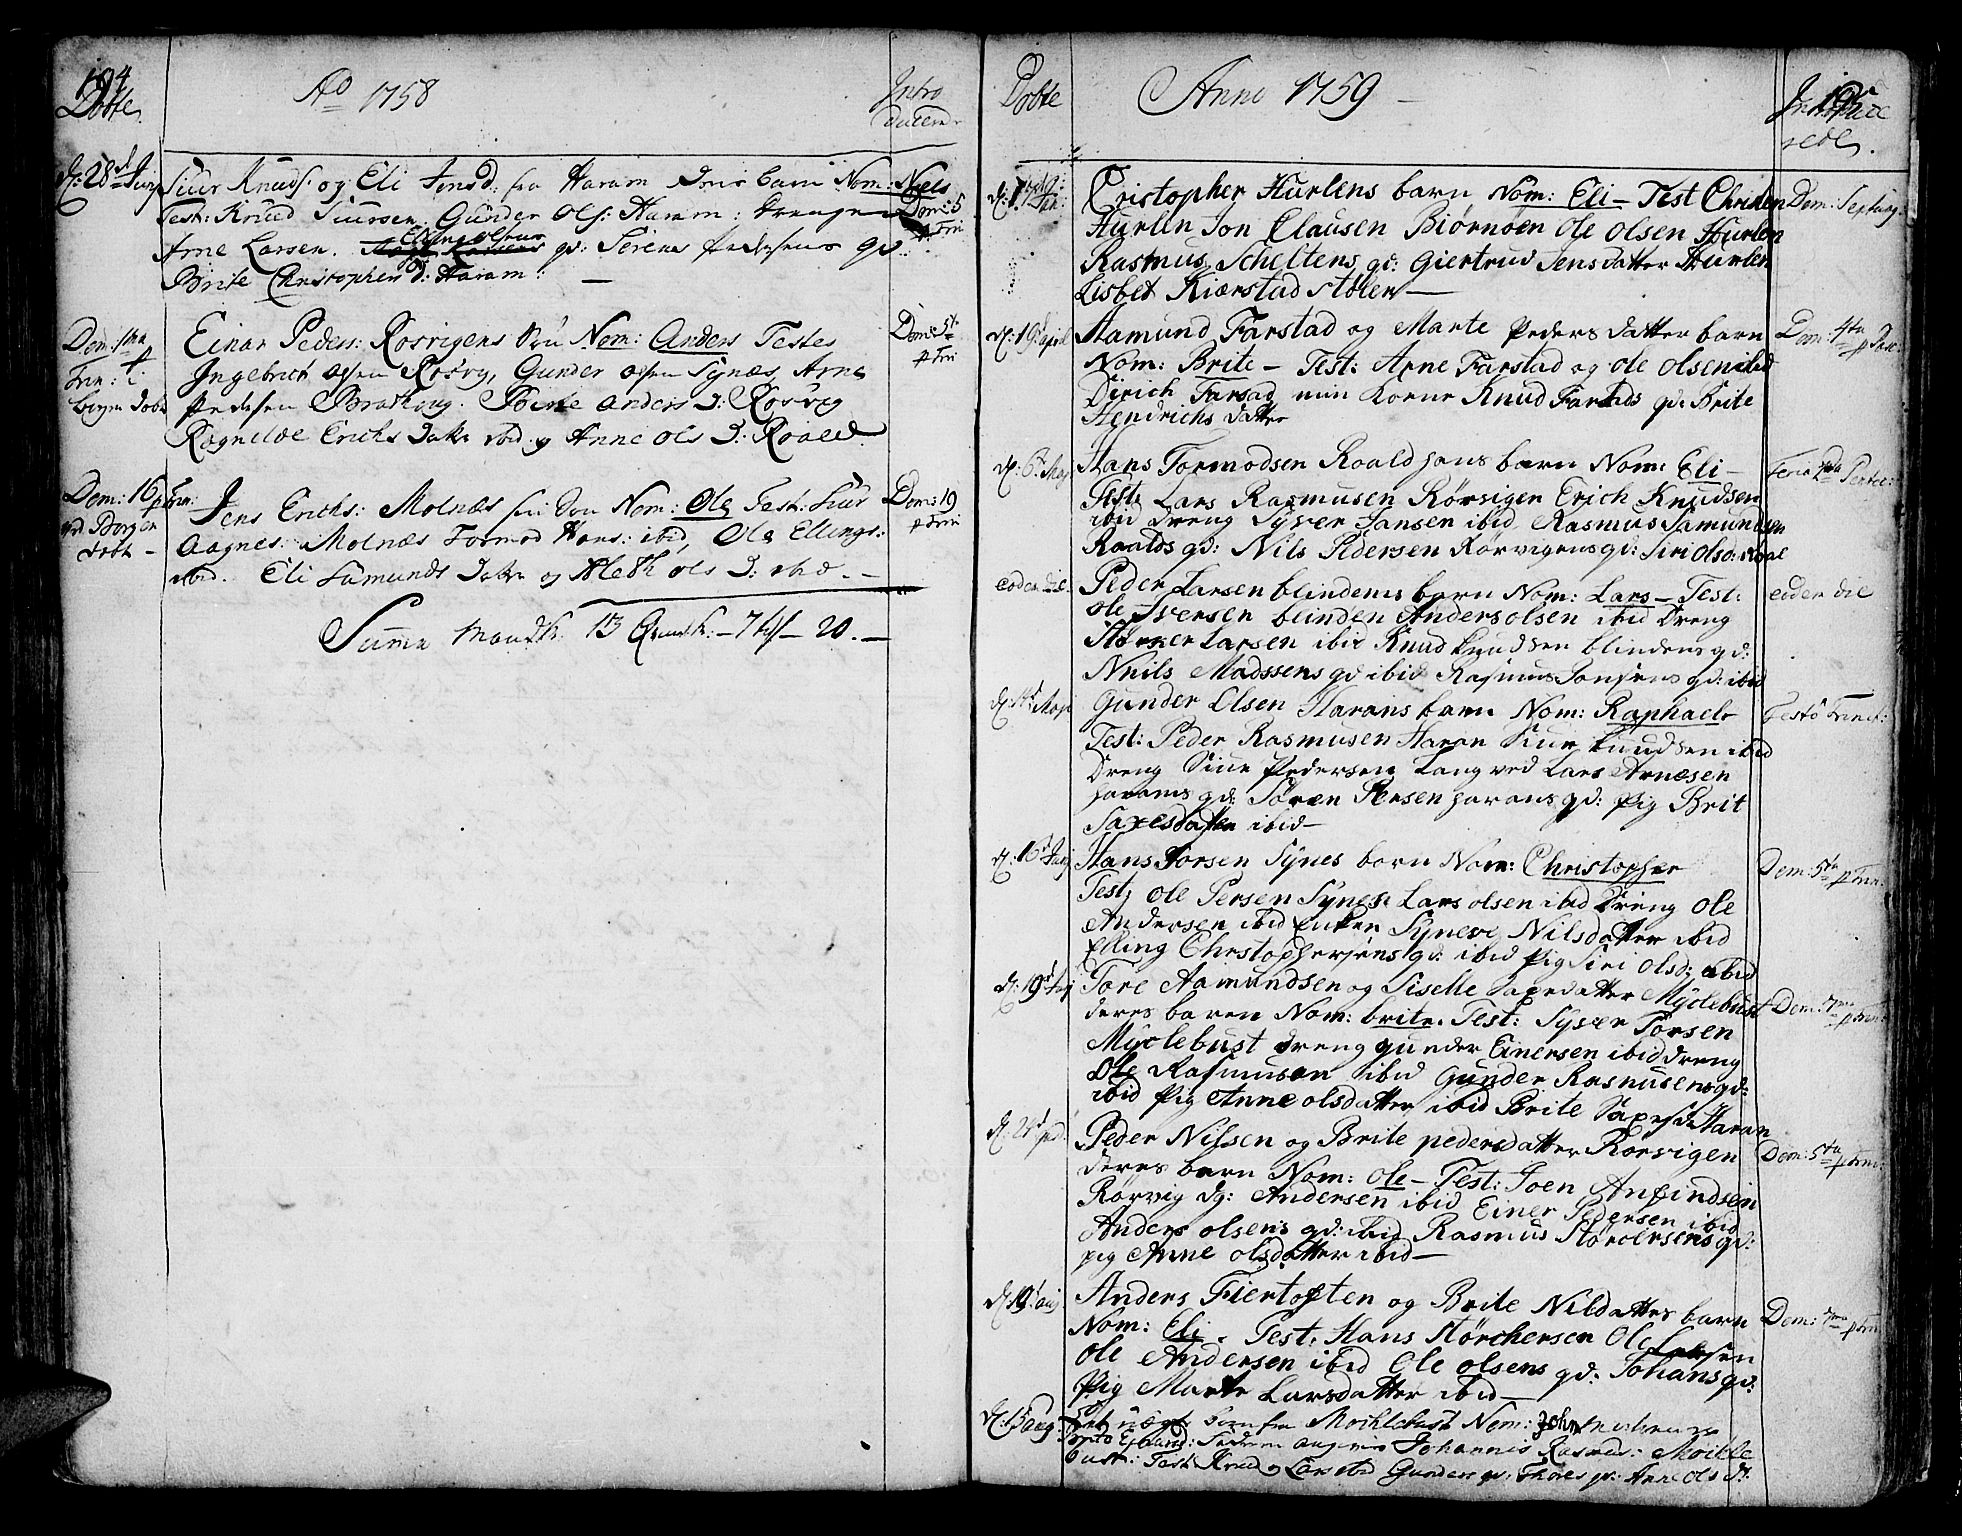 194
Döbte
Ao 1758
Intro
ducend
d: 28d Junj
Siur Knuds: og Eli Jensd: fra Haram barn Nom: Niels
Test: Knud Siursen. Gunder Ols: Haram: Drengen
Dom: 5
p Trin
Arne Larsen. Ellings Olsens gd: Sirena Pedersens gd:
Brite Christophers D: Haram:
Dom: 1ma
p
Trin: i
Borgen döbt
Einar Peders: Rörvigens Nom: Anders Testes
Ingebrict Olsen Rörvig, Gunder Olsen Synæs, Arne
Pedersen Brathoug. Anders D: Rörvig
Ragnilde Erichs Datter ibid og Anne Ols D: Roald.
Dom: 5te
p Trin
Dom: 16 p Trin:
Borgen
döbt
Jens Erichs: Molnæs Nom: Ole Test: Siur
Aagnes: Molnæs Tormod Hans: ibid, Ole Ellings:
ibid. Eli Samunds Datter og Aleth Ols D: ibid.
Dom: 19
p Trin
Summa Mandk: 13 Qvindk: 7 20.
Döbte
Anno 1759
195
d: 1
Cristopher Hurlens barn Nom: Eli - Test Christen
Hurlen Jon Clausen Biørnøen Ole Olsen Hurlen
Rasmus Scheltens gd: Giertrud Jensdatter Hurlen
Lisbet Kiærstad Stølen
Dom: Septuag:
d: 19d april
Aamund Farstad og Marte Peders datter barn
Nom: Brite - Test: Arne Farstad og Ole Olsen ibid
Dirich Farsad min Korne Knud Farstads gd: Brite
Hendrichs datter
Dom: 4ta p Pasc:
d: 6d Maj
Hans Tormodsen Roald hans barn Nom: Eli -
Test: Lars Rasmusen Rørvigen Erich Knudsen
ibid Dreng Syver Jansen ibid Rasmus Samundsen
Roalds gd: Nils Pedersen Rørvigens gd: Siri Olsd: Roal
Feria 2da Pentec:
eodem die
Peder Larsen blindens barn Nom: Lars - Test:
Ole Iversen blinden Anders Olsen ibid Dreng
Størker Larsen ibid Knud Knudsen blindens gd:
Nniils Madssens gd ibid Rasmus Jansens gd: ibid
eidem die
Maji
Gunder Olsen Harans barn Nom: Raphael
Test: Peder Rasmusen Haran Siur Knudsen ibid
Dreng Siur Pedersen Langved Lars Arnesen
harams gd: Søren Jensen harans gd: Pig Brit
Saxesdatter ibid
Festo Trinit:
d: 16d Junj
Hans Torsen Synes barn Nom: Christopher
Test: Ole Persen Synes Lars Olsen ibid Dreng Ole
Andersen ibid Enken Syneve Nilsdatter ibid
Elling Christophersens gd: ibid Pig Siri Olsd: ibid
Dom: 5ta p Trin:
d: 19d
Tore Aamundsen og Siselle Saxedatter Myclebust
deres baren Nom: brite. Test: Syver Torsen
Myclebust dreng gunder Einersen ibid dreng
Ole Rasmusen ibid Gunder Rasmusens gd:
ibid Pig Anne olsdatter ibid Brite Saxesd. Haran
Dom: 7ma p Trin:
Peder Nilssen og Brite pedersdatter Rørvigen
deres barn Nom: Ole - Test: Joen Anfindsen
Rørvig dg: Andersen ibid Einer Pedersen ibid
Anders olsens gd: ibid Rasmus Størcersens gd:
pig Anne olsdatter ibid
Dom: 5ta p Trin:
d: 19d
Anders Fiertoften og Brite Nildatters barn
Nom: Eli. Test: Hans Størchersen Ole Larsen
Ole Andersen ibid Ole olsens gd: Johans gd:
Pig Marte Larsdatter ibid
Dom: p Trin
d: 15 aug:
Et uægte barn fra Moihlebust Nom: John
Johannis Rasmus: Moikle
bust: Test Knud og Lars ibid Gunders gd: Thores gd: Anne Ols D: